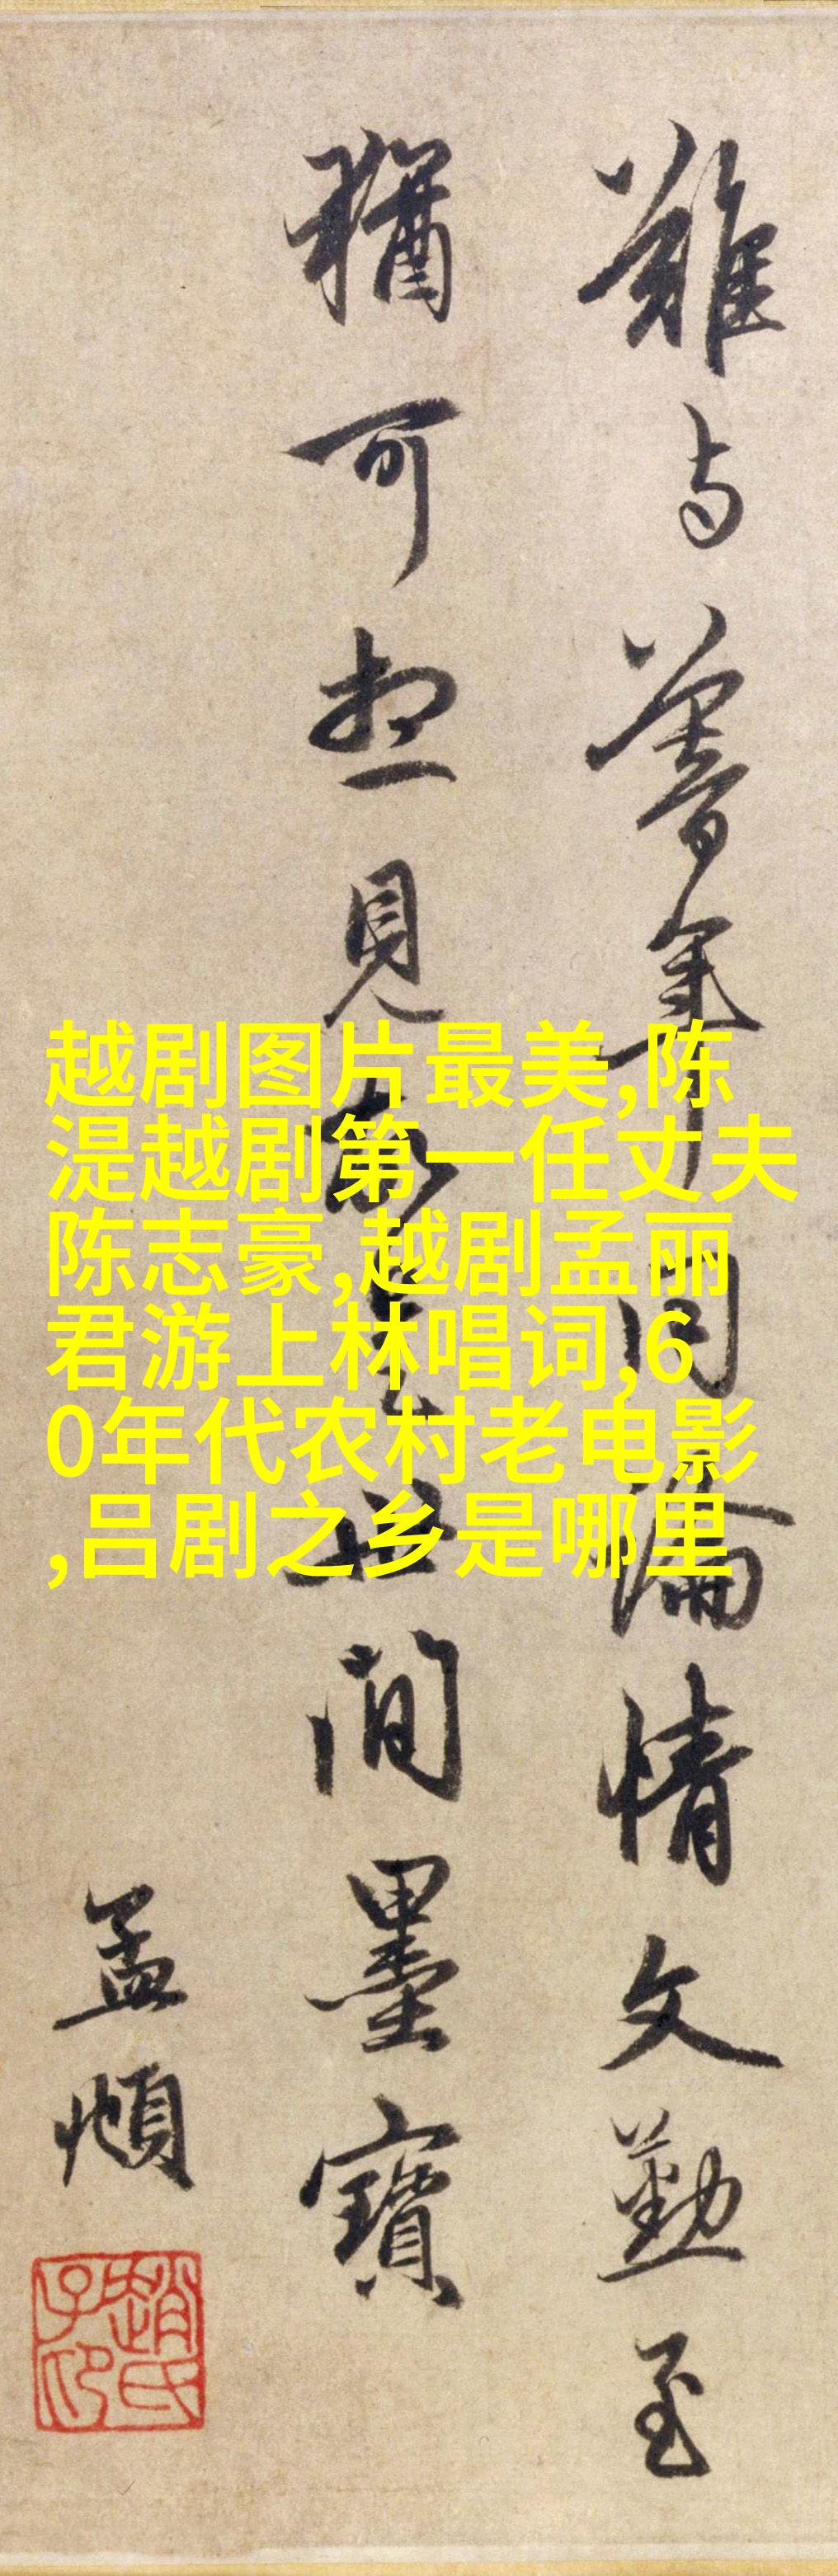 難与暮年同論情文勤至
猶可想見故是世間墨寶
孟頫
趙氏子昂
越剧图片最美,陈
湜越剧第一任丈夫
陈志豪,越剧孟丽
君游上林唱词,6
0年代农村老电影
,吕剧之乡是哪里